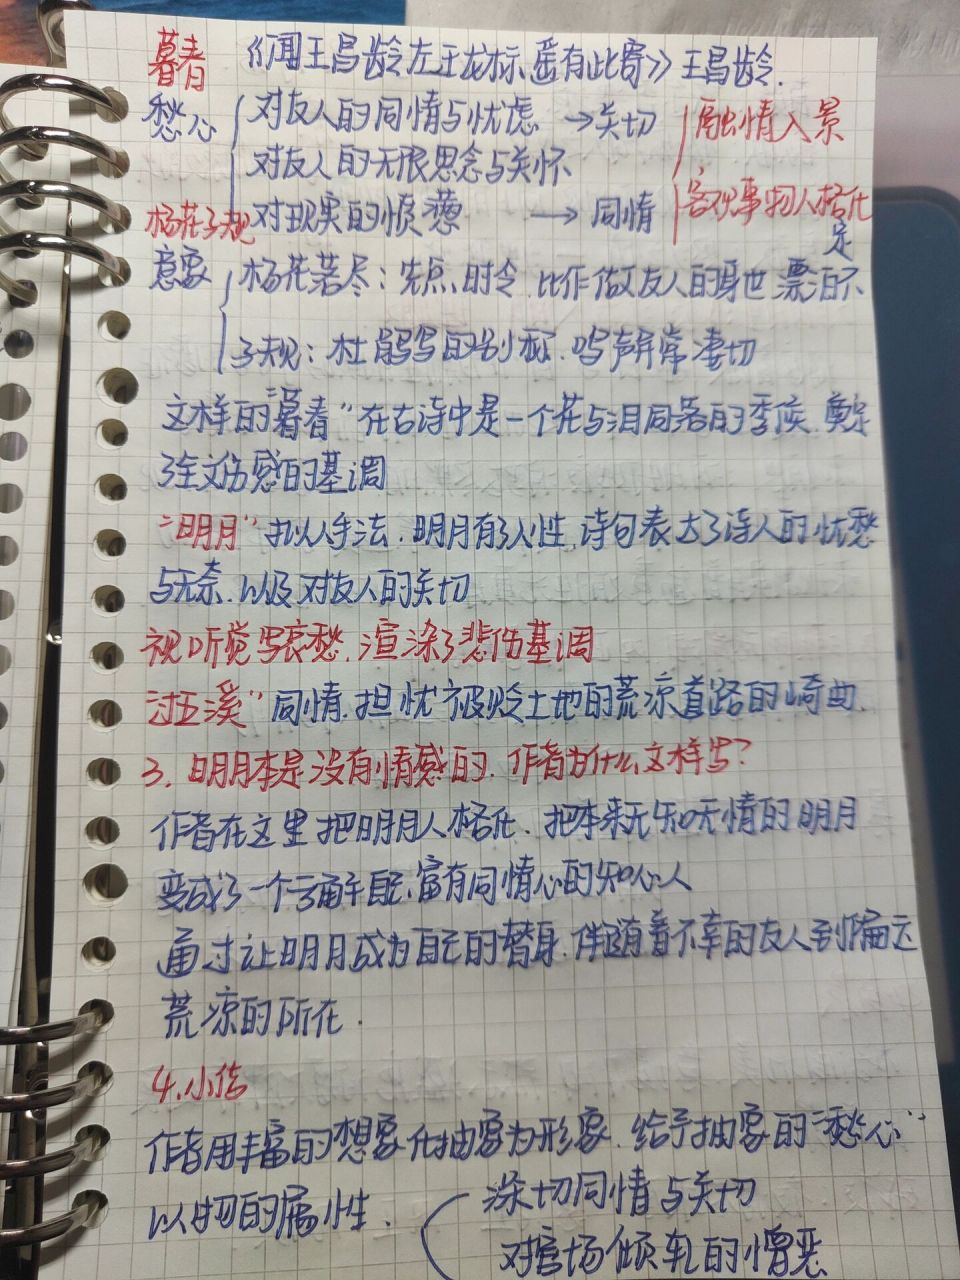 暮春 《闻王昌龄左迁龙标遥有此寄》王昌龄.
愁心 对友人的同情与忧虑 →关切 融情入景
对友人的无限思念与关怀
杨花子规 对现实的愤懑 → 同情 客观事物人格化
意象 杨花落尽:先点时令.比作做友人的身世 漂泊不定
子规:杜鹃鸟的别称.鸣声异常凄切
这样的"暮春"在古诗中是一个花与泪同落的季候.奠定
了全文伤感的基调
"明月"拟人手法.明月有了人性.诗句表达了诗人的忧愁
与无奈.以及对友人的关切
视听觉写哀愁.渲染了悲伤基调
过五溪"同情.担忧被贬土地的荒凉道路的崎曲.
3.明月本是没有情感的.作者为什么这样写?
作者在这里把明月人格化.把本来无知无情的明月
变成了一个了解自己.富有同情心的知心人
通过让明月成为自己的替身.伴随着不幸的友人到偏远
荒凉的所在.
4.小结
作者用丰富的想象化抽象为形象.给予抽象的"愁心"
以物的属性. 深切同情与关切
对官场倾轧的憎恶